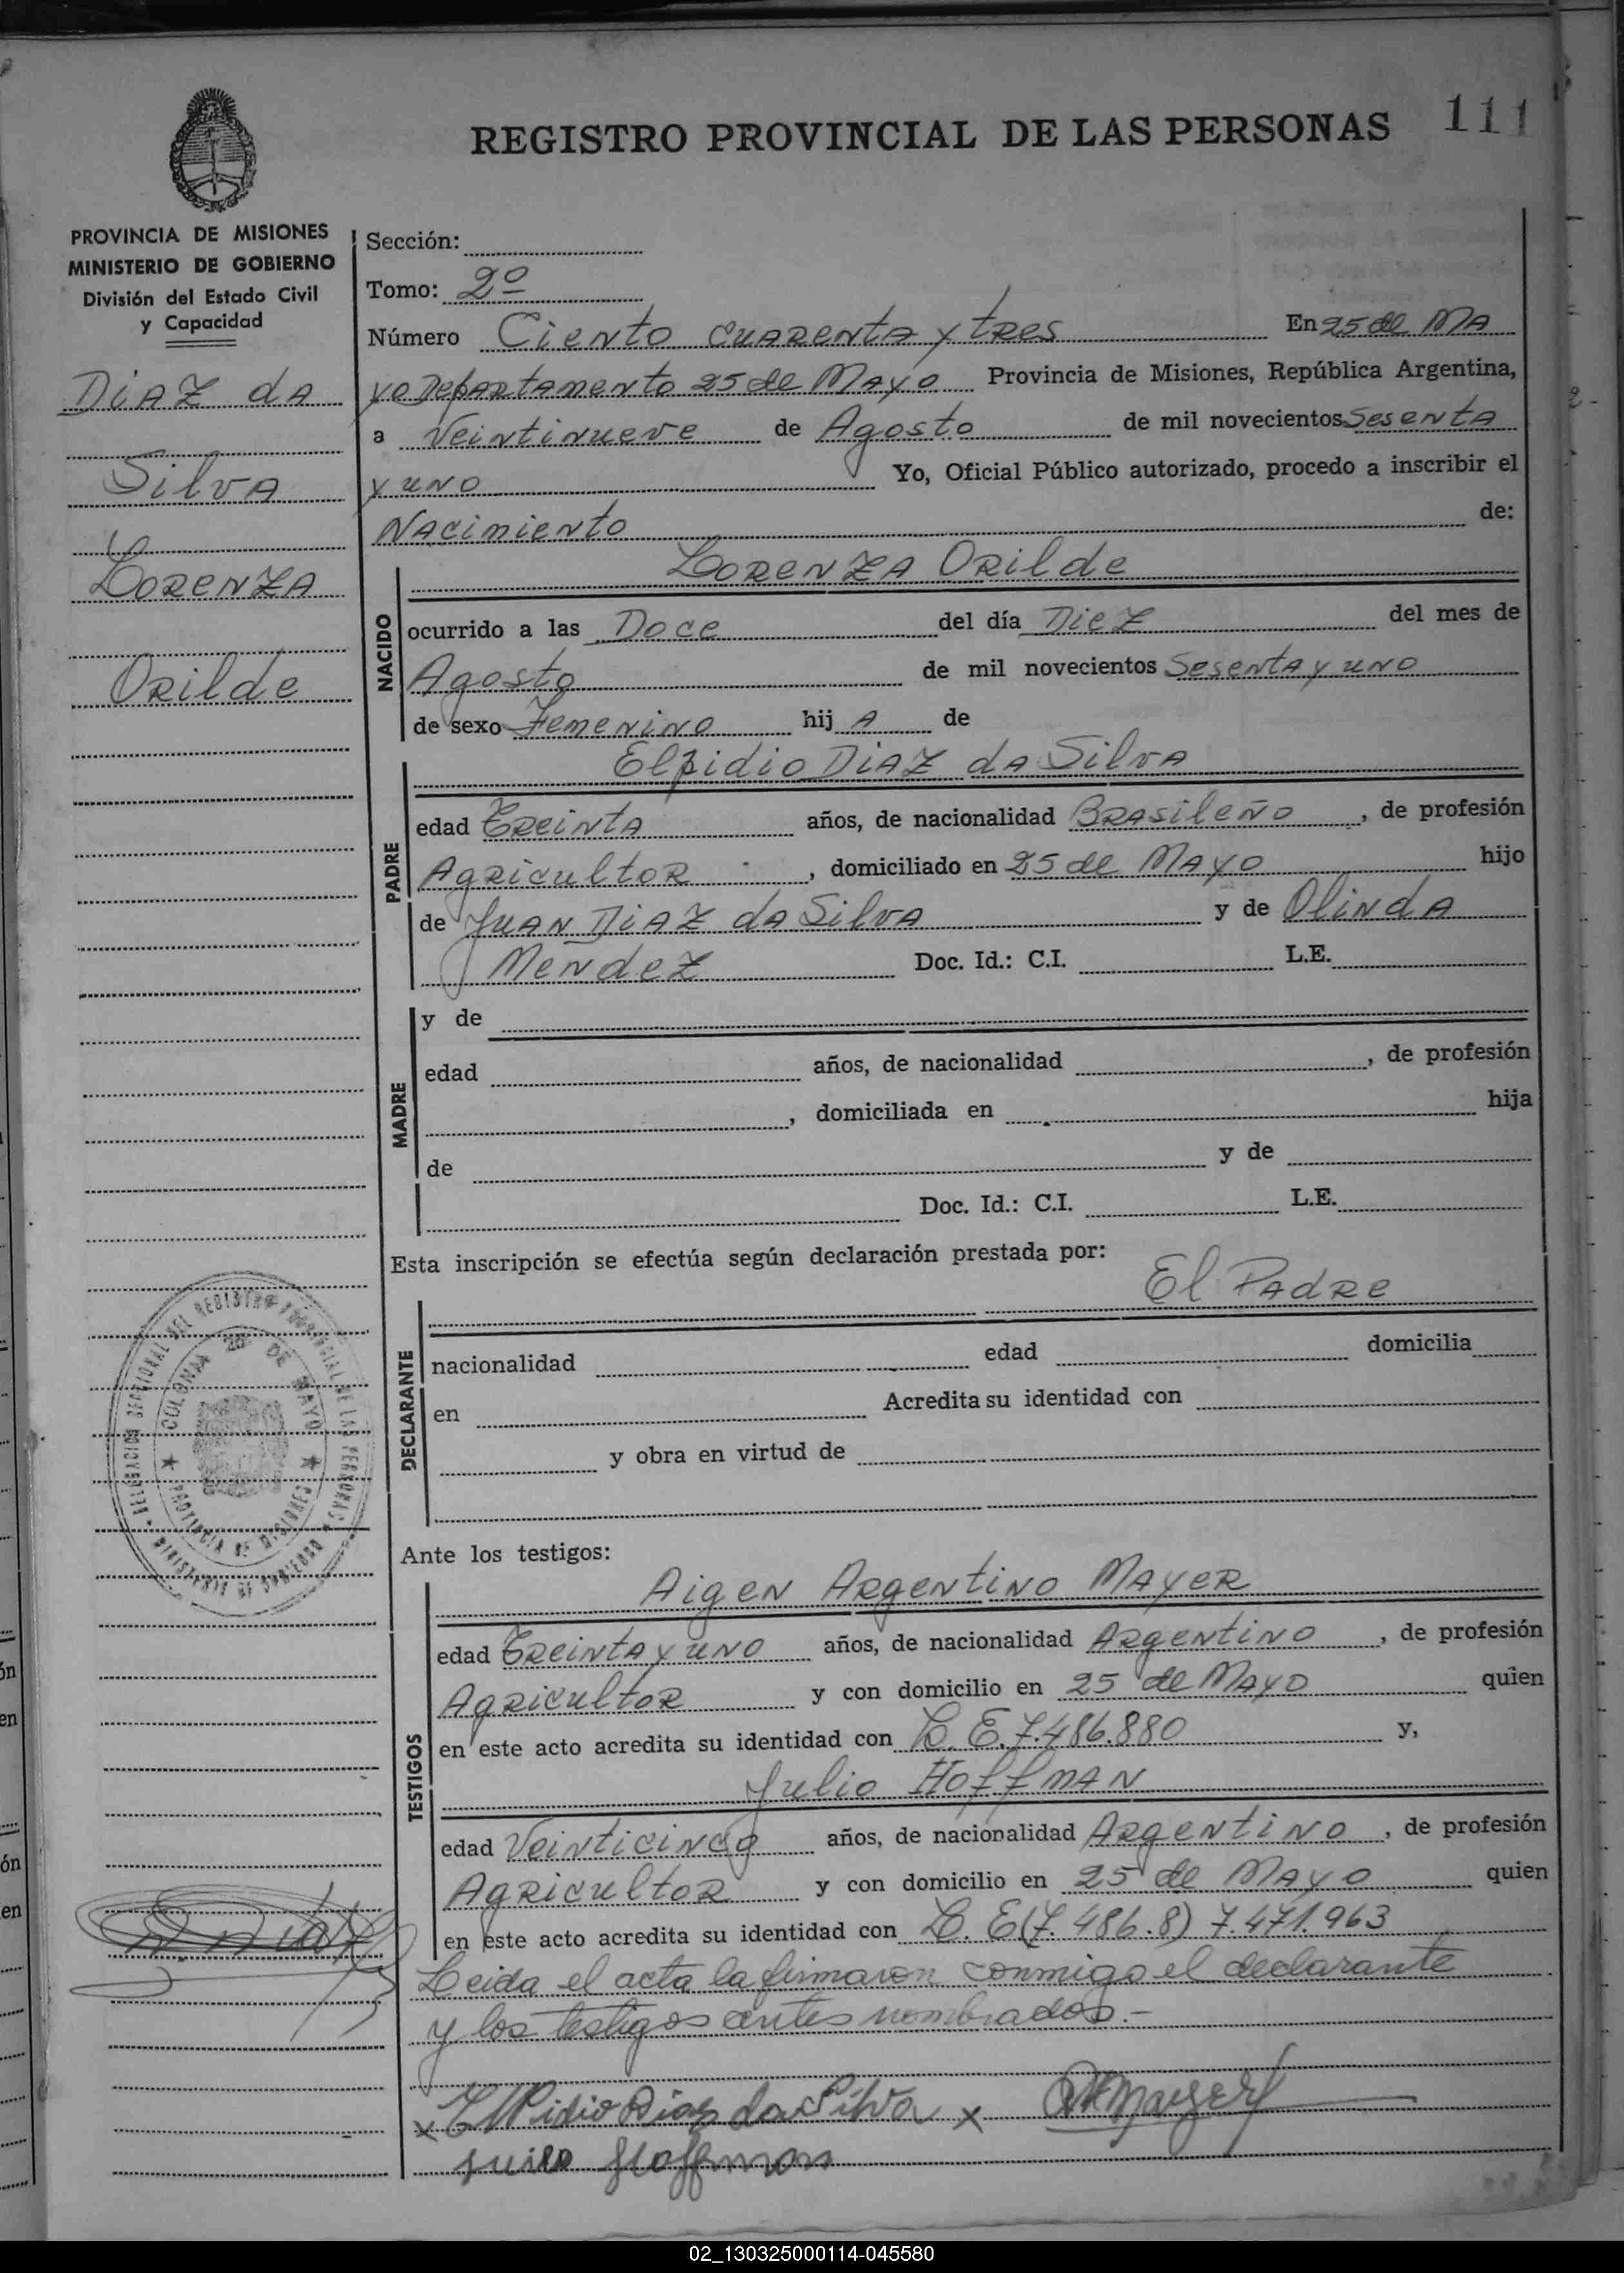 REGISTRO PROVINCIAL DE LAS PERSONAS 111
PROVINCIA DE MISIONES
MINISTERIO DE GOBIERNO
División del Estado Civil
y Capacidad
DIAZ da
Silva
Lorenza
Orilde
Sección:
Tomo: 2º
Número Ciento cuarenta y tres En 25 de MA
yo Departamento 25 de Mayo Provincia de Misiones, República Argentina,
a Veintinueve de Agosto de mil novecientos Sesenta
y uno Yo, Oficial Público autorizado, procedo a inscribir el
Nacimiento de:
NACIDO
Lorenza Orilde
ocurrido a las Doce del día Diez del mes de
Agosto de mil novecientos Sesenta y uno
de sexo Femenino hij A de
PADRE
Elpidio Diaz da Silva
edad Treinta años, de nacionalidad Brasileño , de profesión
Agricultor , domiciliado en 25 de Mayo hijo
de Juan Diaz da Silva y de Olinda
Mendez Doc. Id.: C.I. L.E.
MADRE
y de
edad años, de nacionalidad , de profesión
, domiciliada en hija
de y de
Doc. Id.: C.I. L.E.
Esta inscripción se efectúa según declaración prestada por:
El Padre
DECLARANTE
nacionalidad edad domicilia
en Acredita su identidad con
y obra en virtud de
DELEGACION SECCIONAL DEL REGISTRO PROVINCIAL DE LAS PERSONAS
MINISTERIO DE GOBIERNO
COLONIA 25 DE MAYO
PROVINCIA DE MISIONES
Ante los testigos:
TESTIGOS
Aigen Argentino Mayer
edad Treinta y uno años, de nacionalidad Argentino , de profesión
Agricultor y con domicilio en 25 de Mayo quien
en este acto acredita su identidad con L. E. 7.486.880 y,
Julio Hoffman
edad Veinticinco años, de nacionalidad Argentino , de profesión
Agricultor y con domicilio en 25 de Mayo quien
en este acto acredita su identidad con L. E (7.486.8) 7.471.963
Leida el acta la firmaron conmigo el declarante
y los testigos antes nombrados.-
x Elpidio Diaz da Silva x Mayer
Julio Hoffman
02_130325000114-045580